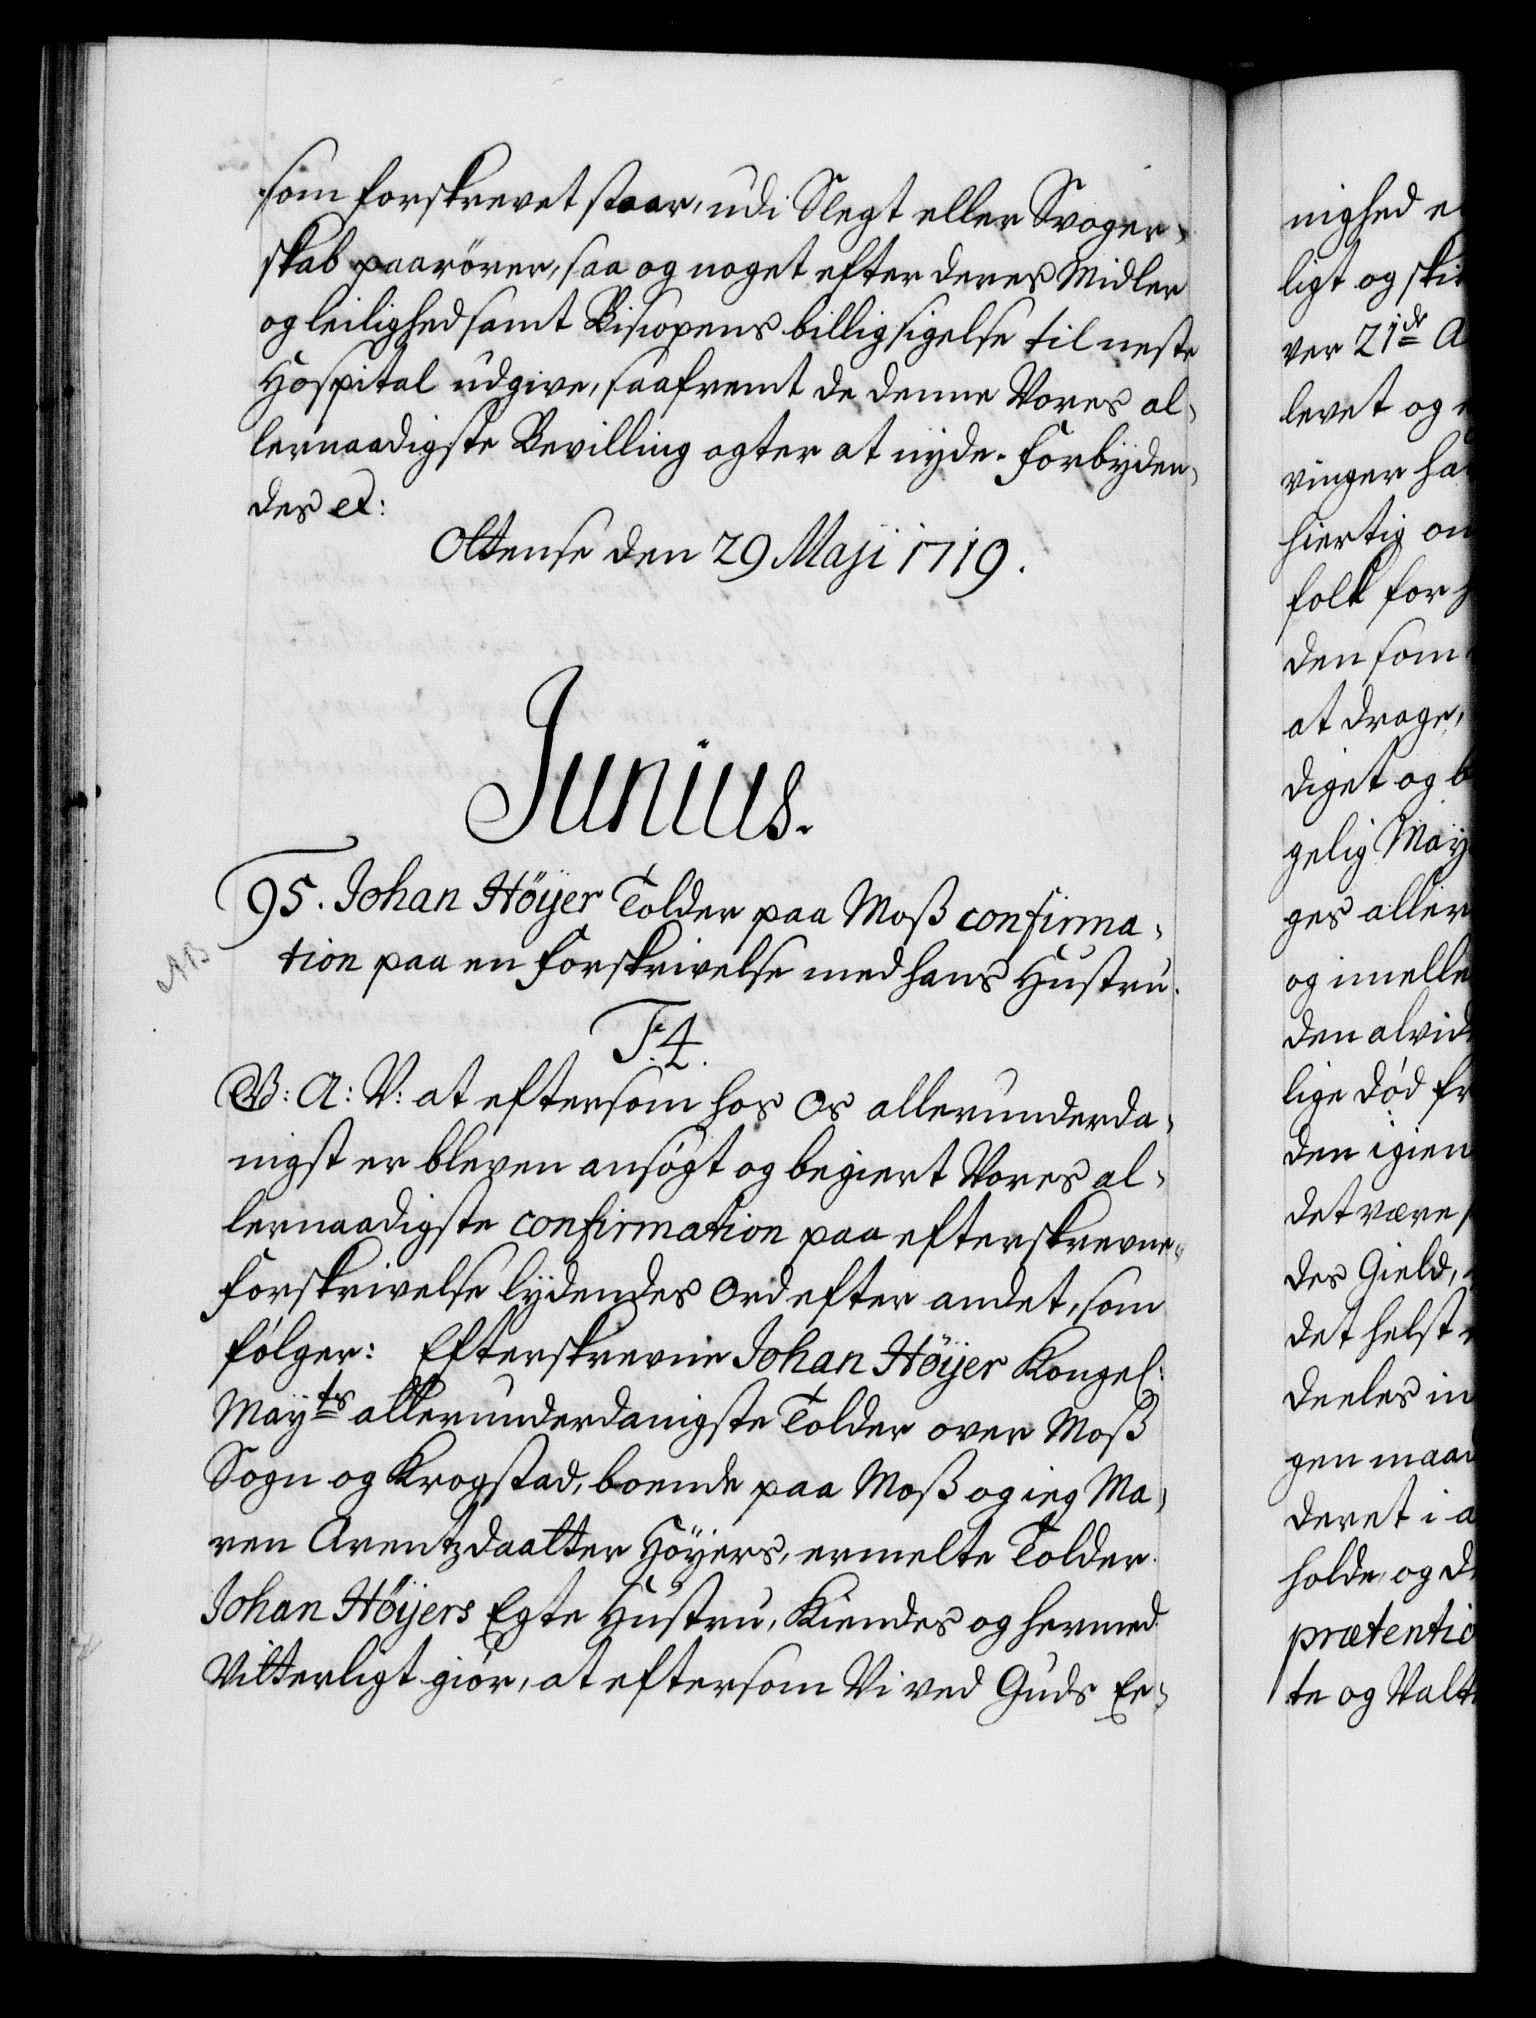 som forskrevet staar, udi Slegt eller Svoger-
skab paarörer, saa og noget efter deres Midler
og leilighed samt Bispens billigsigelse til neste
Hospital udgive, saafremt de denne Vores al-
lernaadigste Bevilling agter at nyde. Forbyden-
des etc:
Ottense den 29 Maji 1719.
Junius.
95. Johan Höyer Tolder paa Moss confirma-
tion paa en forskrivelse med hans Hustru.
NB
F. 4.
G: A: V: at eftersom hos Os allerunderda-
nigst er bleven ansögt og begiert Vores al-
lernaadigste confirmation paa efterskrevne
forskrivelse lydendes Ord efter andet, som
følger: Efterskrevne Johan Höyer Kongel:
Mayts allerunderdanigste Tolder over Moss
Sogn og Krogstad, boende paa Moss og ieg Ma-
ren Arentzdaatter Höyers, ermelte Tolder
Johan Höyers Egte Hustru, Kiendes og hermed
Vitterligt giør, at eftersom Vi ved Guds Ee-
nighed e
ligt og ski
ver 21de A
levet og
vinger ha
hiertig om
folk for h
den som
at drage,
diget og b
gelig May
ges aller
og imelle
den alvid
lige død fr
den igien
det være s
des Gield,
det helst
deeles in
gen maad
deret i a
holde, og d
prætentio
te og Valt